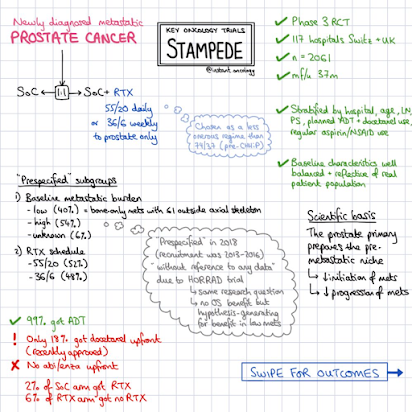 Newly diagnosed metastatic
PROSTATE CANCER
KEY ONCOLOGY TRIALS
STAMPEDE
@instant.oncology
✓ Phase 3 RCT
✓ 117 hospitals Switz + UK
✓ n = 2061
✓ mf/u 37m
SoC ← 1:1 → SoC + RTX
55/20 daily
or 36/6 weekly
to prostate only
Chosen as a less
onerous regime than
74/37 (pre-CHHiP)
✓ Stratified by hospital, age, LN,
PS, planned ADT + docetaxel use,
regular aspirin/NSAID use
✓ Baseline characteristics well
balanced + reflective of real
patient population
"Prespecified" subgroups
1) Baseline metastatic burden
- low (40%) = bone-only mets with
- high (54%)
- unknown (6%)
2) RTX schedule
- 55/20 (52%)
- 36/6 (48%)
"Prespecified" in 2018
(recruitment was 2013-2016)
"without reference to any data"
due to HORRAD trial
↳ same research question
↳ no OS benefit but
hypothesis-generating
for benefit in low mets
Scientific basis
The prostate primary
prepares the pre-
metastatic niche
↳ ↓ initiation of mets
↳ ↓ progression of mets
✓ 99% got ADT
! Only 18% got docetaxel upfront
(recently approved)
✗ No abi/enza upfront
2% of SoC arm got RTX
6% of RTX arm got no RTX
SWIPE FOR OUTCOMES →